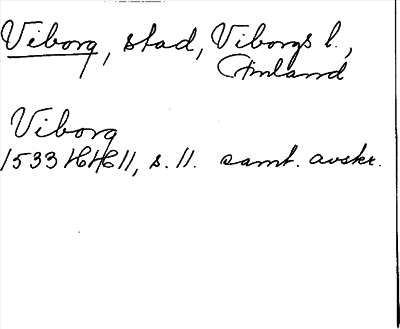 Viborg, stad, Viborgs l.,
Finland
Viborg
1533 HH 11, s. 11. samt. avskr.